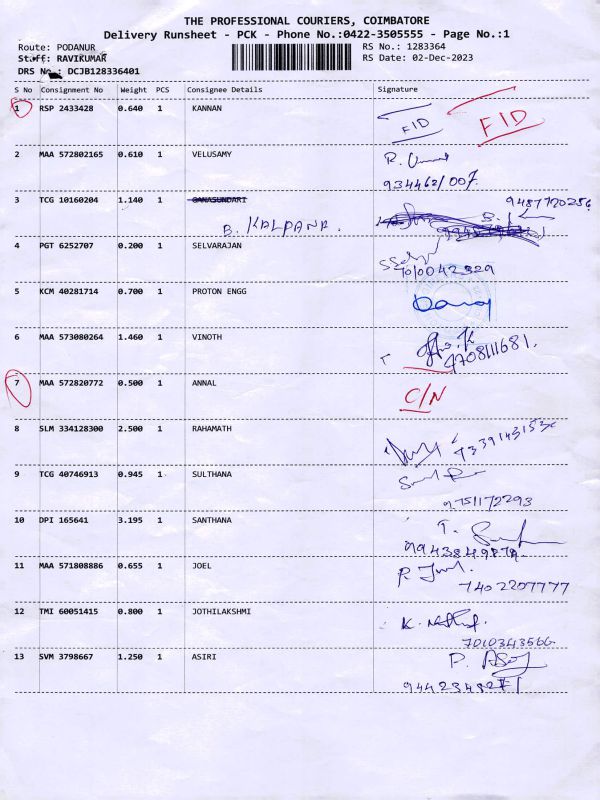 THE PROFESSIONAL COURIERS, COIMBATORE
Delivery Runsheet - PCK - Phone No.:0422-3505555 - Page No.:1
Route: PODANUR
RS No.: 1283364
Staff: RAVIKUMAR
RS Date: 02-Dec-2023
DRS No.: DCJB128336401
S No Consignment No Weight PCS Consignee Details Signature
1 RSP 2433428 0.640 1 KANNAN FID FID
2 MAA 572802165 0.610 1 VELUSAMY R.
934462/007.
9487720256
3 TCG 10160204 1.140 1 GANASUNDARI
B. KALPANA.
4 PGT 6252707 0.200 1 SELVARAJAN
7010042329
5 KCM 40281714 0.700 1 PROTON ENGG
6 MAA 573080264 1.460 1 VINOTH
9708111681.
7 MAA 572820772 0.500 1 ANNAL C/N
8 SLM 334128300 2.500 1 RAHAMATH
9 TCG 40746913 0.945 1 SULTHANA
9751172293
10 DPI 165641 3.195 1 SANTHANA T.
11 MAA 571808886 0.655 1 JOEL
7402207777
12 TMI 60051415 0.800 1 JOTHILAKSHMI K.
7010343566
13 SVM 3798667 1.250 1 ASIRI P.